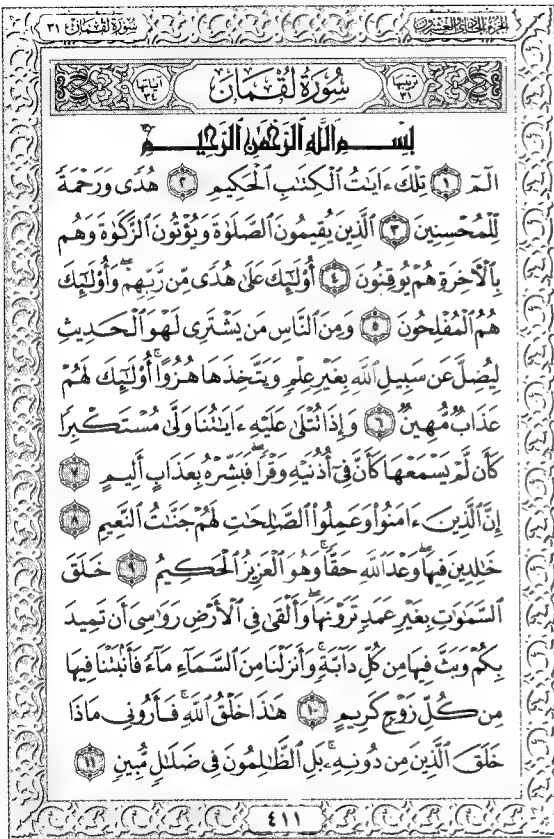 سُورَةُ لُقْمَانَ ٣١
الجزء الحادي والعشرون
ترتيبها ٣١
سُورَةُ لُقْمَانَ
آياتها ٣٤
بِسْمِ ٱللَّهِ ٱلرَّحْمَٰنِ ٱلرَّحِيمِ
الٓمٓ ١ تِلْكَ ءَايَٰتُ ٱلْكِتَٰبِ ٱلْحَكِيمِ ٢ هُدًى وَرَحْمَةً
لِّلْمُحْسِنِينَ ٣ ٱلَّذِينَ يُقِيمُونَ ٱلصَّلَوٰةَ وَيُؤْتُونَ ٱلزَّكَوٰةَ وَهُم
بِٱلْأَخِرَةِ هُمْ يُوقِنُونَ ٤ أُو۟لَٰٓئِكَ عَلَىٰ هُدًى مِّن رَّبِّهِمْ ۖ وَأُو۟لَٰٓئِكَ
هُمُ ٱلْمُفْلِحُونَ ٥ وَمِنَ ٱلنَّاسِ مَن يَشْتَرِى لَهْوَ ٱلْحَدِيثِ
لِيُضِلَّ عَن سَبِيلِ ٱللَّهِ بِغَيْرِ عِلْمٍ وَيَتَّخِذَهَا هُزُوًا ۚ أُو۟لَٰٓئِكَ لَهُمْ
عَذَابٌ مُّهِينٌ ٦ وَإِذَا تُتْلَىٰ عَلَيْهِ ءَايَٰتُنَا وَلَّىٰ مُسْتَكْبِرًا
كَأَن لَّمْ يَسْمَعْهَا كَأَنَّ فِىٓ أُذُنَيْهِ وَقْرًا ۖ فَبَشِّرْهُ بِعَذَابٍ أَلِيمٍ ٧
إِنَّ ٱلَّذِينَ ءَامَنُوا۟ وَعَمِلُوا۟ ٱلصَّٰلِحَٰتِ لَهُمْ جَنَّٰتُ ٱلنَّعِيمِ ٨
خَٰلِدِينَ فِيهَا ۖ وَعْدَ ٱللَّهِ حَقًّا ۚ وَهُوَ ٱلْعَزِيزُ ٱلْحَكِيمُ ٩ خَلَقَ
ٱلسَّمَٰوَٰتِ بِغَيْرِ عَمَدٍ تَرَوْنَهَا ۖ وَأَلْقَىٰ فِى ٱلْأَرْضِ رَوَٰسِىَ أَن تَمِيدَ
بِكُمْ وَبَثَّ فِيهَا مِن كُلِّ دَآبَّةٍ ۚ وَأَنزَلْنَا مِنَ ٱلسَّمَآءِ مَآءً فَأَنۢبَتْنَا فِيهَا
مِن كُلِّ زَوْجٍ كَرِيمٍ ١٠ هَٰذَا خَلْقُ ٱللَّهِ فَأَرُونِى مَاذَا
خَلَقَ ٱلَّذِينَ مِن دُونِهِۦ ۚ بَلِ ٱلظَّٰلِمُونَ فِى ضَلَٰلٍ مُّبِينٍ ١١
٤١١